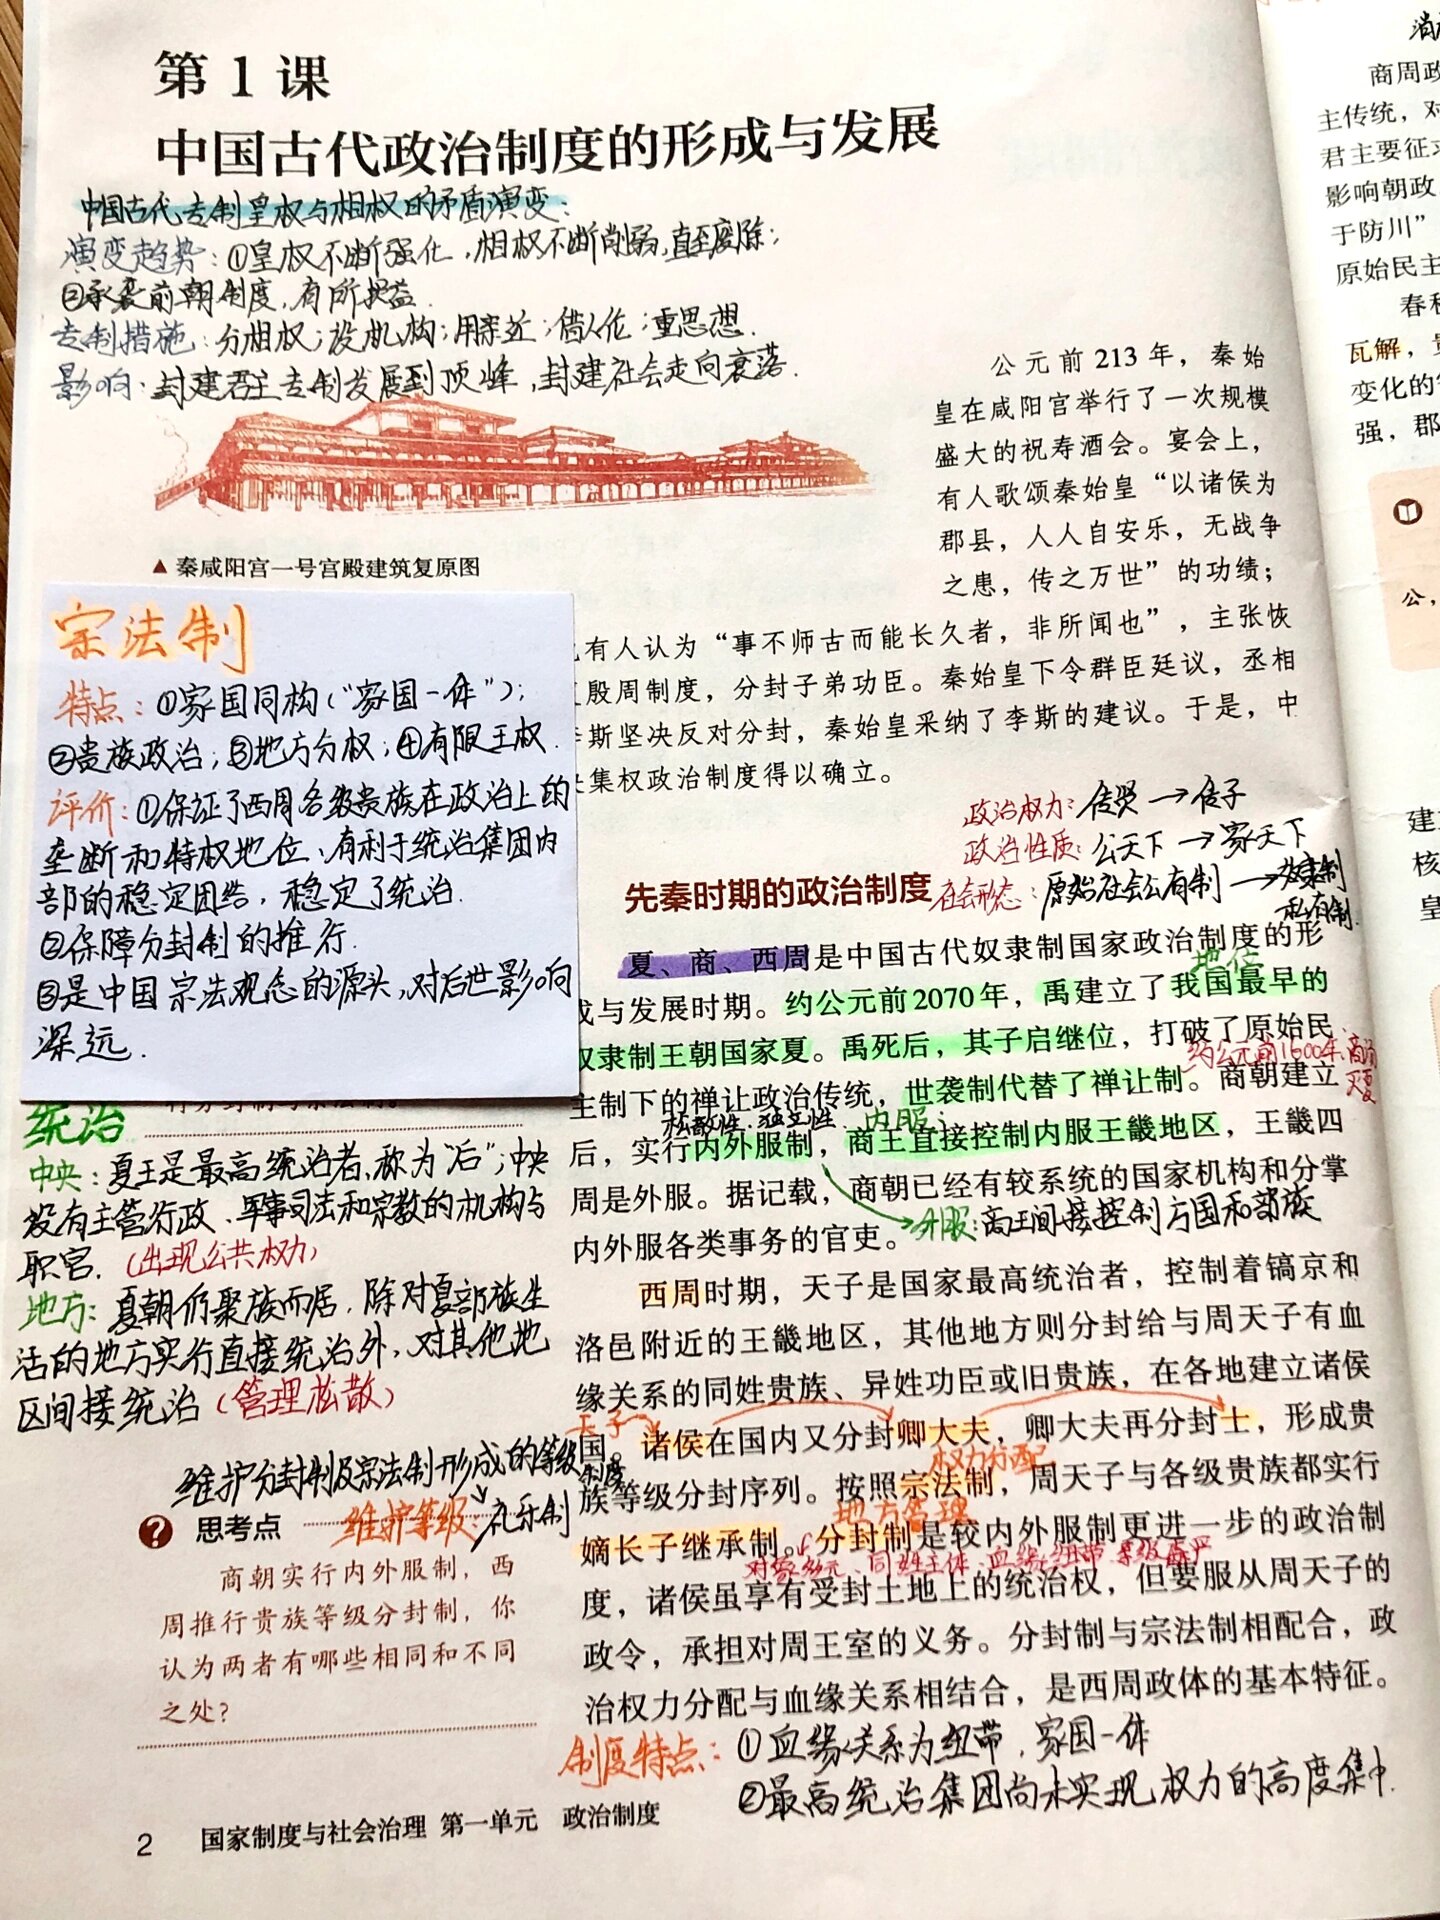 第1课
中国古代政治制度的形成与发展
中国古代专制皇权与相权的矛盾演变：
演变趋势：①皇权不断强化，相权不断削弱，直至废除；
②承袭前朝制度，有所损益.
专制措施：分相权；设机构；用亲近；借人伦；重思想.
影响：封建君主专制发展到顶峰，封建社会走向衰落.
公元前213年，秦始
皇在咸阳宫举行了一次规模
盛大的祝寿酒会。宴会上，
有人歌颂秦始皇“以诸侯为
郡县，人人自安乐，无战争
之患，传之万世”的功绩；
▲ 秦咸阳宫一号宫殿建筑复原图
有人认为“事不师古而能长久者，非所闻也”，主张恢
殷周制度，分封子弟功臣。秦始皇下令群臣廷议，丞相
李斯坚决反对分封，秦始皇采纳了李斯的建议。于是，中
集权政治制度得以确立。
宗法制
特点：①家国同构（“家国一体”）；
②贵族政治；③地方分权；④有限王权.
评价：①保证了西周各级贵族在政治上的
垄断和特权地位、有利于统治集团内
部的稳定团结，稳定了统治.
②保障分封制的推行.
③是中国宗法观念的源头，对后世影响
深远.
统治
中央：夏王是最高统治者，称为“后”；中央
没有主管行政、军事司法和宗教的机构与
职官.（出现公共权力）
地方：夏朝仍聚族而居，除对夏部族生
活的地方实行直接统治外，对其他地
区间接统治（管理松散）
维护分封制及宗法制形成的等级制度
维护等级：礼乐制
思考点
商朝实行内外服制，西
周推行贵族等级分封制，你
认为两者有哪些相同和不同
之处？
政治权力：传贤→传子
政治性质：公天下→家天下
先秦时期的政治制度
社会形态：原始社会公有制→奴隶制
私有制.
夏、商、西周是中国古代奴隶制国家政治制度的形
地位
成与发展时期。约公元前2070年，禹建立了我国最早的
奴隶制王朝国家夏。禹死后，其子启继位，打破了原始民
约公元前1600年，商汤
灭夏
主制下的禅让政治传统，世袭制代替了禅让制。商朝建立
松散性、独立性. 内服：
后，实行内外服制，商王直接控制内服王畿地区，王畿四
周是外服。据记载，商朝已经有较系统的国家机构和分掌
外服：商王间接控制方国和部族
内外服各类事务的官吏。
西周时期，天子是国家最高统治者，控制着镐京和
洛邑附近的王畿地区，其他地方则分封给与周天子有血
缘关系的同姓贵族、异姓功臣或旧贵族，在各地建立诸侯
天子
国。诸侯在国内又分封卿大夫，卿大夫再分封士，形成贵
权力分配
族等级分封序列。按照宗法制，周天子与各级贵族都实行
地方管理
嫡长子继承制。分封制是较内外服制更进一步的政治制
对象多元、同姓主体、血缘纽带、等级森严
度，诸侯虽享有受封土地上的统治权，但要服从周天子的
政令，承担对周王室的义务。分封制与宗法制相配合，政
治权力分配与血缘关系相结合，是西周政体的基本特征。
制度特点：①血缘关系为纽带，家国一体
②最高统治集团尚未实现权力的高度集中.
2 国家制度与社会治理 第一单元 政治制度
商周政
主传统，对
君主要征求
影响朝政
于防川”
原始民主
春秋
瓦解，贵
变化的
强，郡
公，
建
核
皇